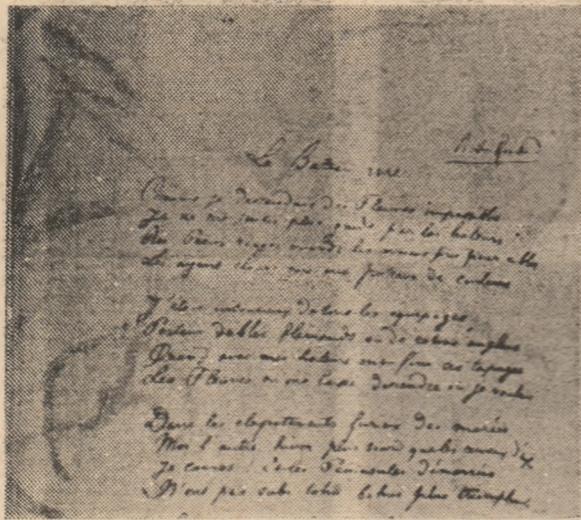 Le Bateau ivre
Comme je descendais des Fleuves impassibles
Je ne me sentis plus guidé par les haleurs :
Des Peaux rouges criards les avaient pris pour cibles
Les ayant cloués nus aux poteaux de couleurs
J'étais insoucieux de tous les équipages
Porteur de blés flamands ou de cotons anglais
Quand avec mes haleurs ont fini ces tapages
Les Fleuves m'ont laissé descendre où je voulais
Dans les clapotements furieux des marées
Moi l'autre hiver plus sourd que les cerveaux
Je courus ! et les Péninsules démarrées
N'ont pas subi tohus bohus plus triomphants